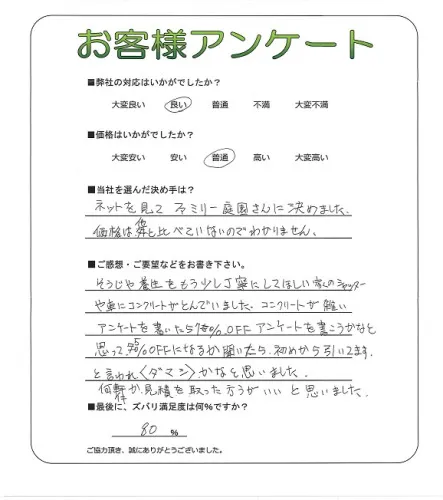 お客様アンケート
■弊社の対応はいかがでしたか？
大変良い 良い 普通 不満 大変不満
■価格はいかがでしたか？
大変安い 安い 普通 高い 大変高い
■当社を選んだ決め手は？
ネットを見て ファミリー庭園さんに決めました。
価格は他と比べていないのでわかりません。
■ご感想・ご要望などをお書き下さい。
そうじや養生をもう少し丁寧にしてほしい 家のシャッター
や車にコンクリートがとんでいました。コンクリートが雑い
アンケートを書いたら %OFF アンケートを書こうかなと
思って 5%OFFになるか聞いたら、初めから引いてます、
と言われ〈ダマシ〉かなと思いました。
何軒か見積を取った方がいいと思いました。
■最後に、ズバリ満足度は何％ですか？
80 %
ご協力頂き、誠にありがとうございました。